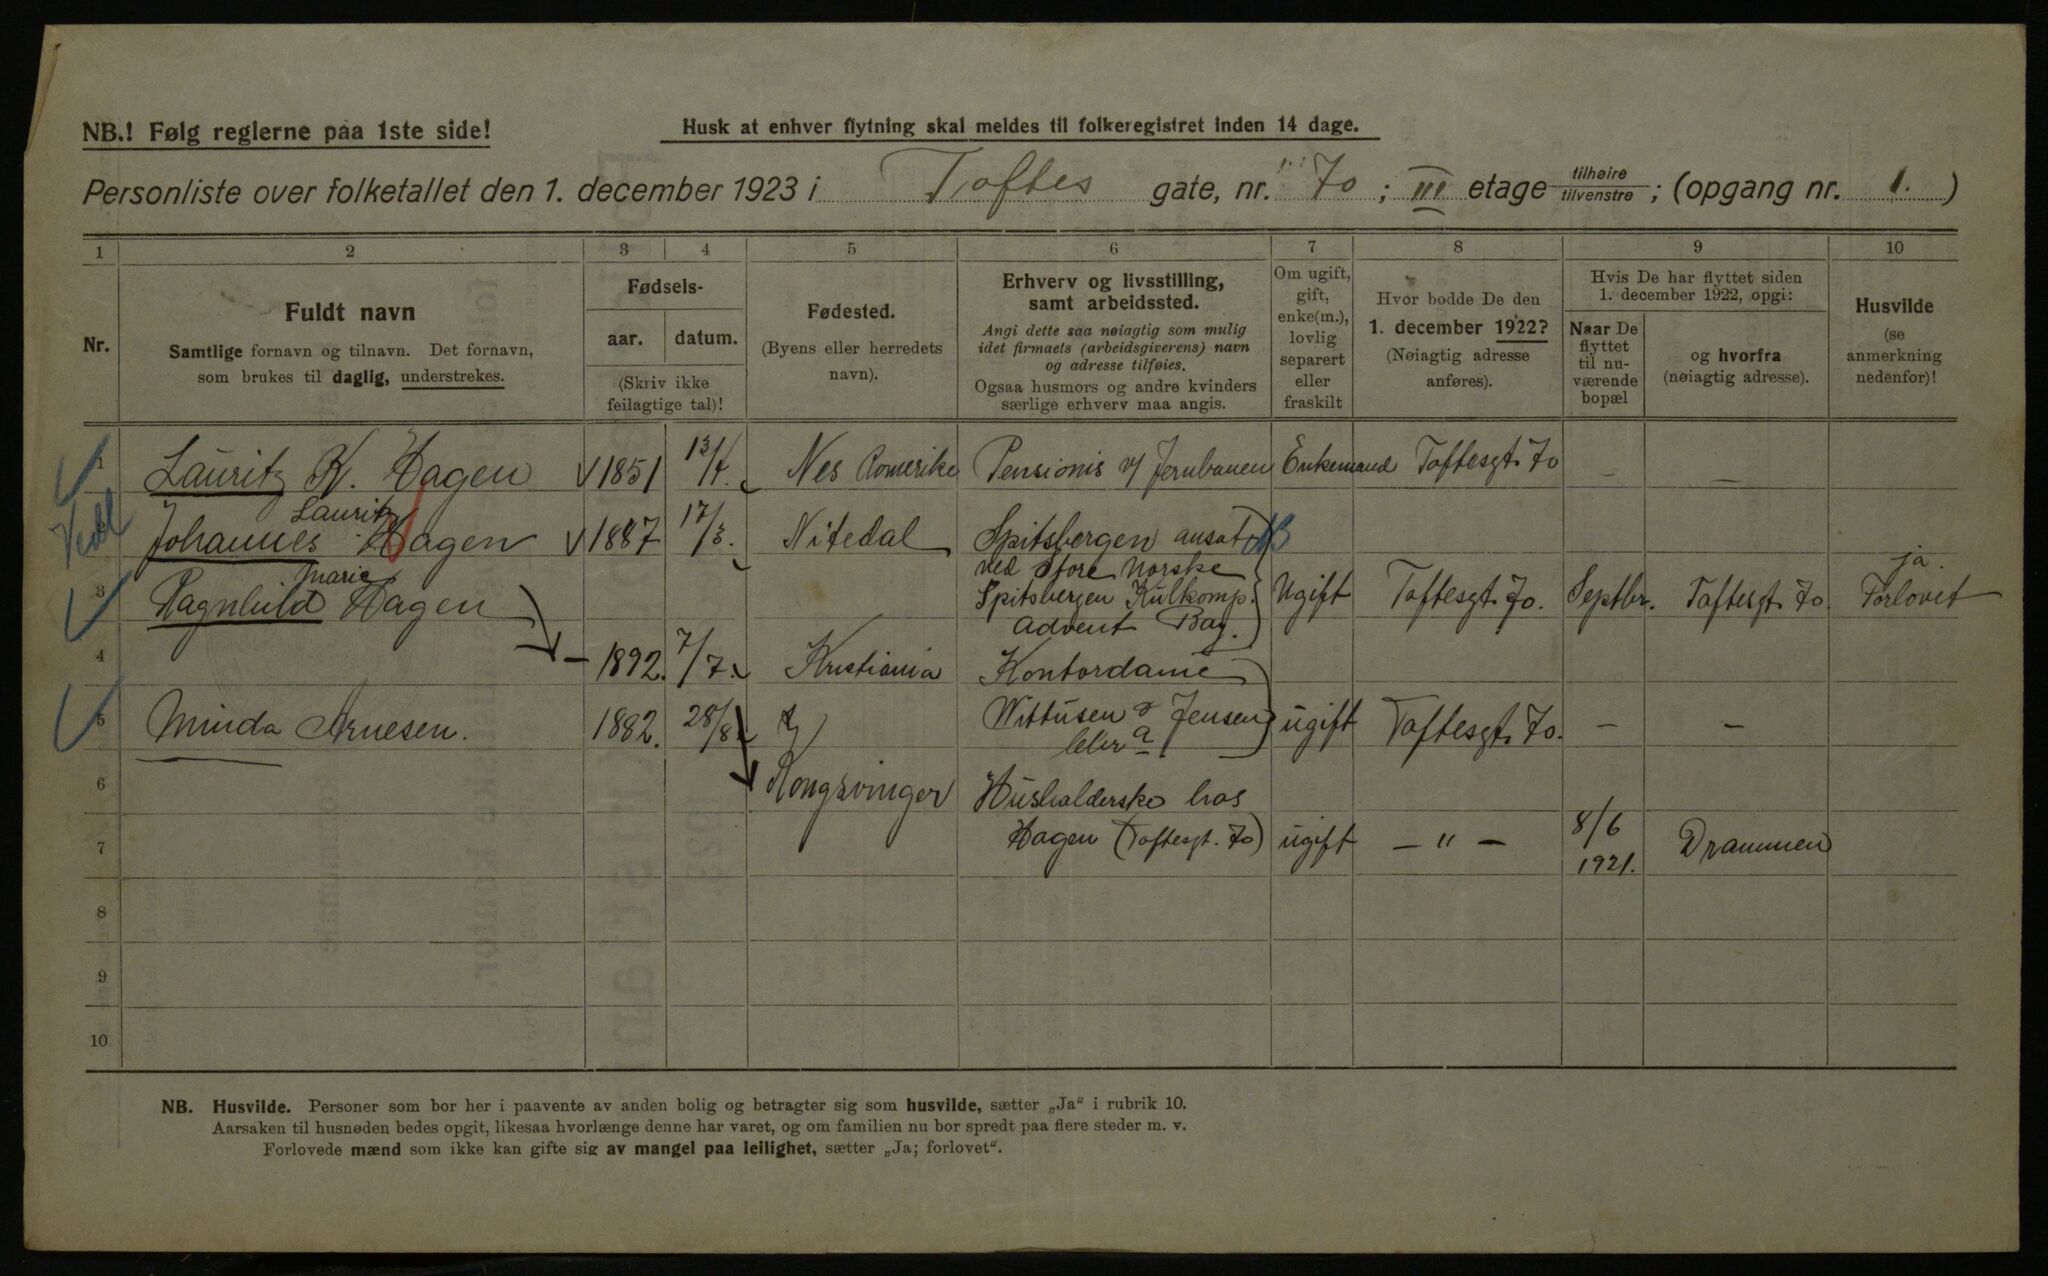 NB.! Følg reglerne paa 1ste side!
Husk at enhver flytning skal meldes til folkeregistret inden 14 dage.
Personliste over folketallet den 1. december 1923 i Toftes gate, nr. 70; III etage tilhøire tilvenstre; (opgang nr. 1.)
1 2 3 4 5 6 7 8 9 10
Nr.
Fuldt navn
Samtlige fornavn og tilnavn. Det fornavn,
som brukes til daglig, understrekes.
Fødsels-
aar. datum.
(Skriv ikke
feilagtige tal)!
Fødested.
(Byens eller herredets
navn).
Erhverv og livsstilling,
samt arbeidssted.
Angi dette saa nøiagtig som mulig
idet firmaets (arbeidsgiverens) navn
og adresse tilføies.
Ogsaa husmors og andre kvinders
særlige erhverv maa angis.
Om ugift,
gift,
enke(m.),
lovlig
separert
eller
fraskilt
Hvor bodde De den
1. december 1922?
(Nøiagtig adresse
anføres).
Hvis De har flyttet siden
1. december 1922, opgi:
Naar De
flyttet
til nu-
værende
bopæl
og hvorfra
(nøiagtig adresse).
Husvilde
(se
anmerkning
nedenfor)!
1 Lauritz K. Hagen v 1851 13/4. Nes Romerike Pensionis v/ Jernbanen Enkemand Toftesgt. 70 - -
2 Johannes Lauritz Hagen v 1887 17/3. Nitedal Spitsbergen ansat
ved Store Norske
Spitsbergen Kulkomp.
Advent Bay. Ugift Toftesgt. 70. Septbr. Toftesgt 70. ja.
Forlovet
3 Ragnhild Marie Hagen
4 - 1892. 7/7. Kristiania Kontordame
Wittusen & Jensen ugift Toftesgt. 70. - -
5 Minda Arnesen. 1882. 28/8.
6 Kongsvinger Husholderske hos
7 Hagen (Toftesgt. 70) ugift - " - 8/6
1921. Drammen
8
9
10
NB. Husvilde. Personer som bor her i paavente av anden bolig og betragter sig som husvilde, sætter „Ja" i rubrik 10.
Aarsaken til husnøden bedes opgit, likesaa hvorlænge denne har varet, og om familien nu bor spredt paa flere steder m. v.
Forlovede mænd som ikke kan gifte sig av mangel paa leilighet, sætter „Ja; forlovet".